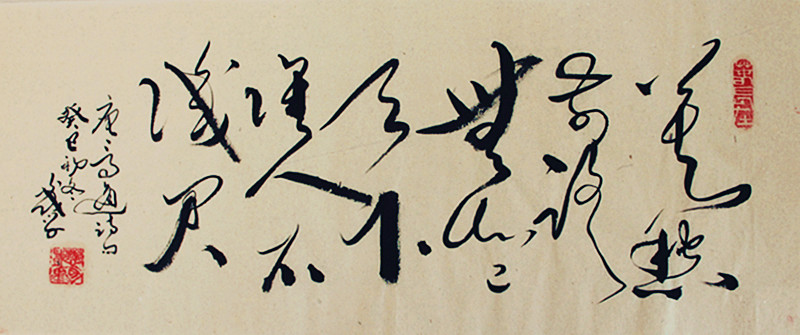 莫愁
前路
無知己
天下
誰人不
識君
唐高適詩句
癸巳初冬